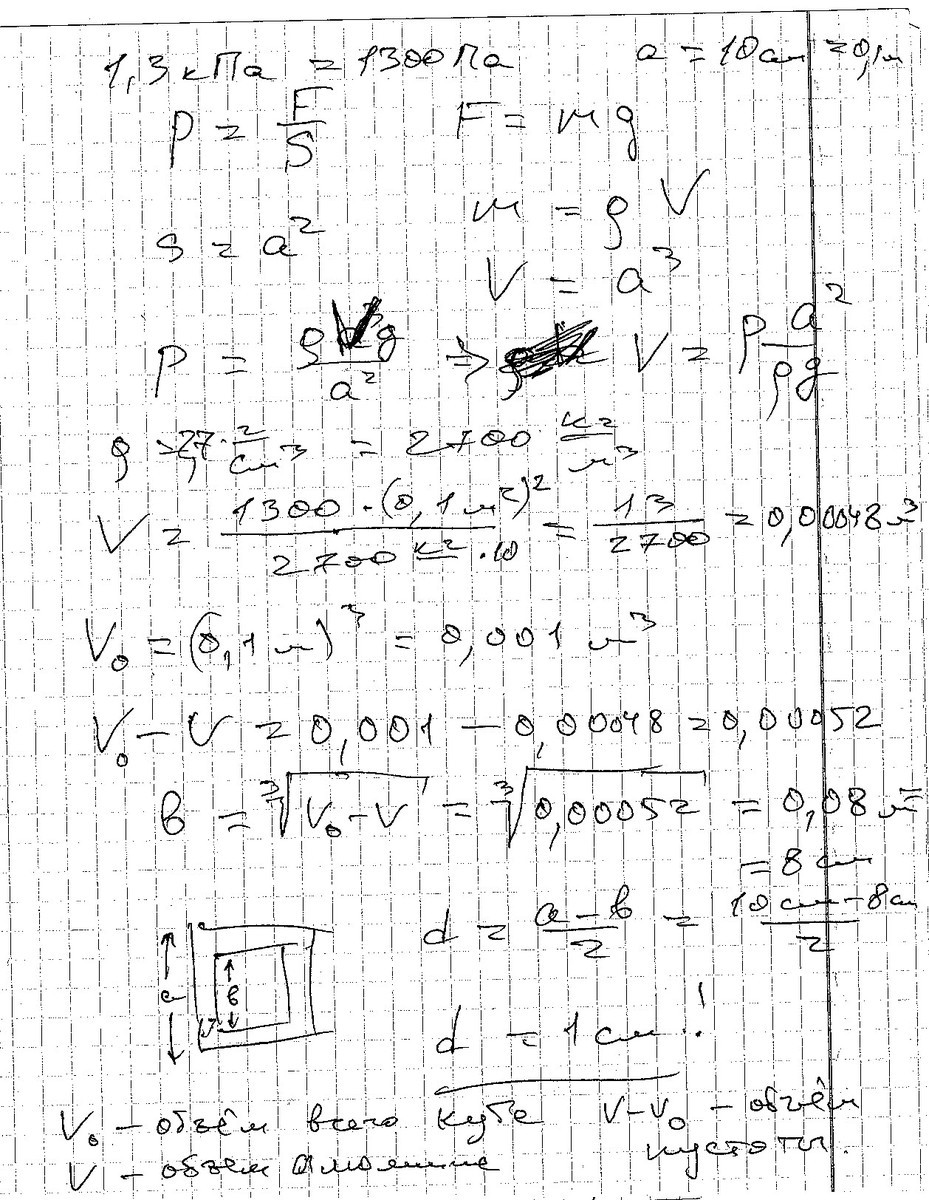 1,3 кПа = 1300 Па a = 10 см = 0,1 м
P = F/S F = mg
m = ρ V
S = a²
V = a³
P = ρ V g / a² => V = P a² / ρg
ρ = 2,7 г/см³ = 2700 кг/м³
V = 1300 · (0,1 м²)² / 2700 кг · 10 = 13/2700 = 0,00048 м³
V₀ = (0,1 м)³ = 0,001 м³
V₀ - V = 0,001 - 0,00048 = 0,00052
в = ³√(V₀ - V) = ³√0,00052 = 0,08 м =
= 8 см
d = a - в / 2 = 10 см - 8 см / 2
a в
d = 1 см !
V₀ - объём всего куба V - V₀ - объём
V - объем алюминие пустоты.